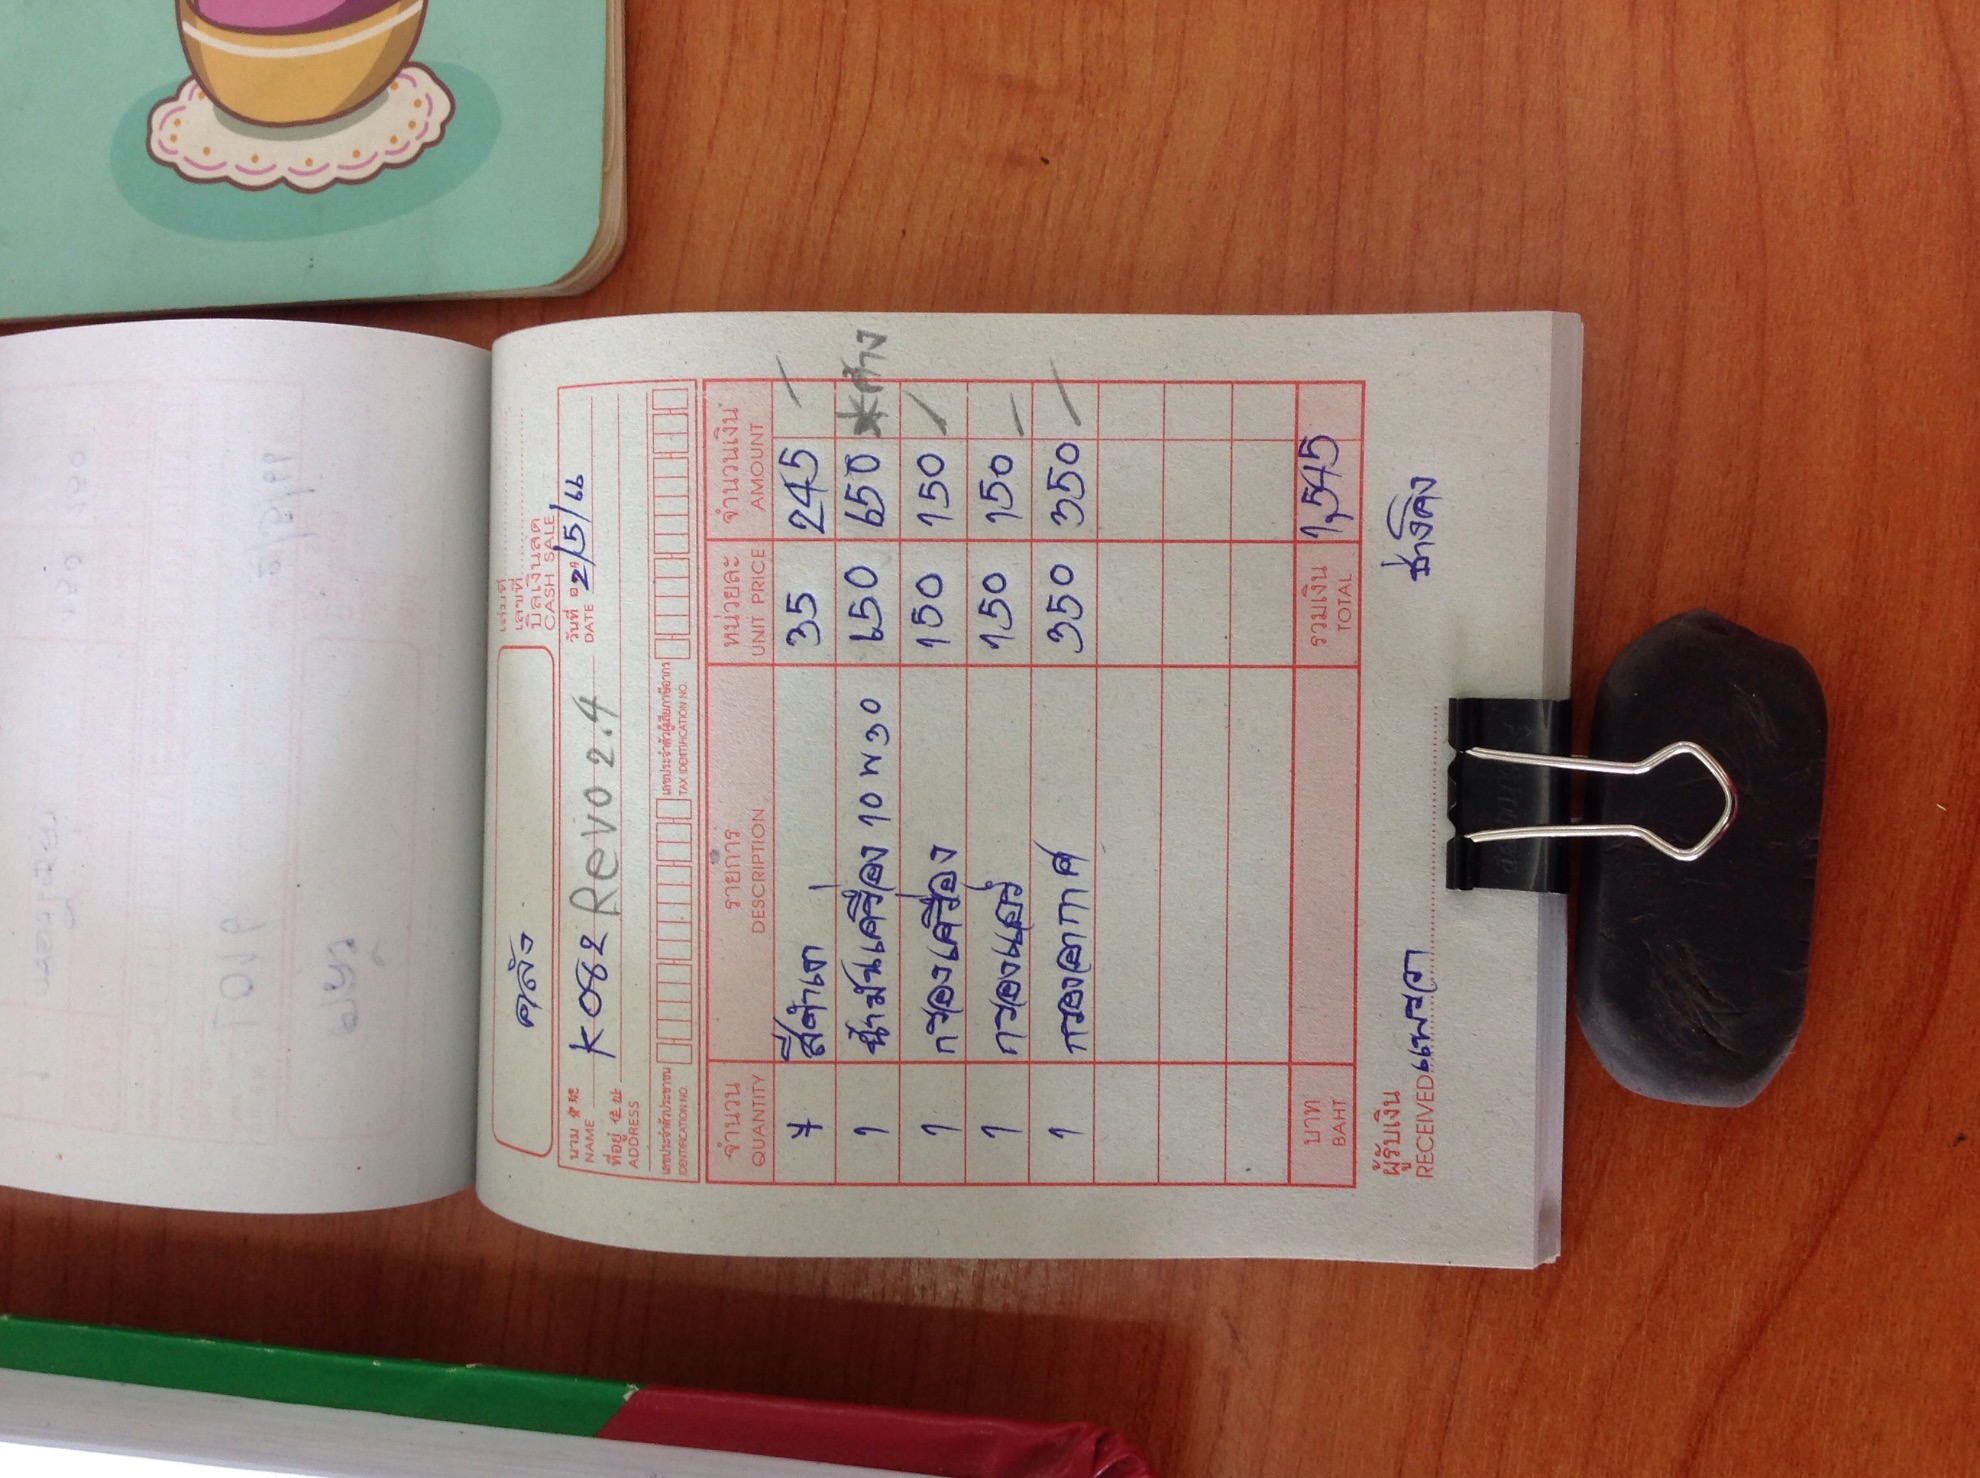 คลัง
เล่มที่
เลขที่
บิลเงินสด
CASH SALE
นาม K082 Revo 2.4 วันที่ 2/5/66
NAME DATE
ที่อยู่
ADDRESS
เลขประจำตัวประชาชน เลขประจำตัวผู้เสียภาษีอากร
IDENTIFICATION NO. TAX IDENTIFICATION NO.
จำนวน รายการ หน่วยละ จำนวนเงิน
QUANTITY DESCRIPTION UNIT PRICE AMOUNT
7 สีดำเงา 35 245
1 น้ำมันเครื่อง 10 W 30 650 650 *ค้าง
1 กรองเครื่อง 150 150
1 กรองแอร์ 150 150
1 กรองอากาศ 350 350
บาท รวมเงิน 1,545
BAHT TOTAL
ผู้รับเงิน
RECEIVED แพรวา